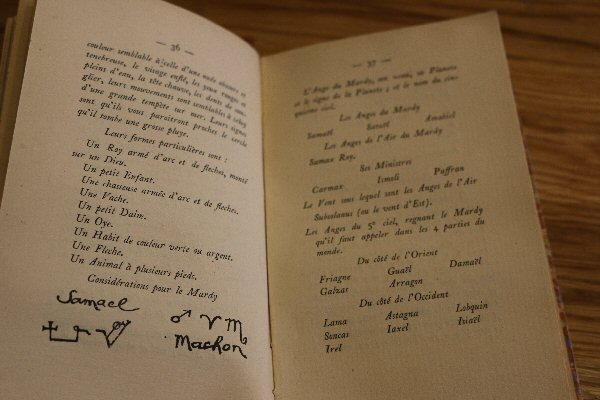 — 36 —
couleur semblable à celle d'une nuée obscure et
tenebreuse, le visage enflé, les yeux rouges et
pleins d'eau, la tête chauve, les dents de san-
glier, leurs mouvements sont semblables à celuy
d'une grande tempête sur mer. Leurs signes
sont qu'ils vous paraitront proches le cercle
qu'il tombe une grosse pluye.
Leurs formes particulières sont :
Un Roy armé d'arc et de fleches, monté
sur un Dieu.
Un petit Enfant.
Une chasseuse armée d'arc et de fleches.
Une Vache.
Un petit Daim.
Un Oye.
Un Habit de couleur verte ou argent.
Une Fleche.
Un Animal à plusieurs pieds.
Considérations pour le Mardy
Samael
♂ ♈ ♏
Machon
— 37 —
L'Ange du Mardy, son sceau, sa Planete
et le signe de la Planete ; et le nom du cin-
quième ciel.
Les Anges du Mardy
Samaël Sataël Amabiel
Les Anges de l'Air du Mardy
Samax Roy.
Ses Ministres
Carmax Ismoli Paffran
Le Vent sous lequel sont les Anges de l'Air
Subsolanus (ou le vent d'Est).
Les Anges du 5e ciel, regnant le Mardy
qu'il faut appeler dans les 4 parties du
monde.
Du côté de l'Orient
Friagne Guaël Damaël
Calzas Arragon
Du côté de l'Occident
Lama Astagna Lobquin
Soncas Iaxel Isiaël
Irel